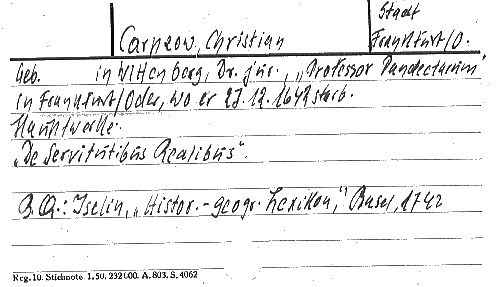 Stadt
Carpzow, Christian Frankfurt/O.
Geb. in Wittenberg, Dr. jur., „Professor Pandectarum"
in Frankfurt/Oder, wo er 27.12.1642 starb.
Hauptwerke:
„De Servitutibus Realibus".
B.Q.: Iselin, „Histor.-geogr. Lexikon," Basel, 1742
Reg. 10. Stichnote. 1. 50. 232000. A. 803. S. 4062